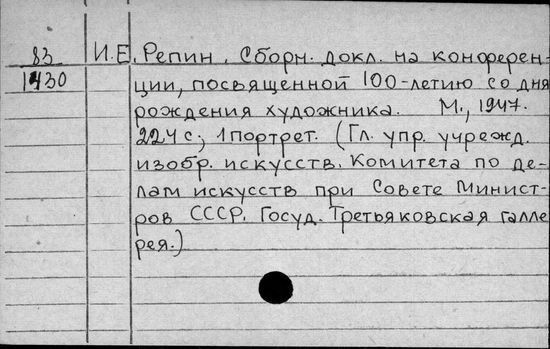 83 И.Е. Репин. Сборн. докл. на конферен-
1430 ции, посвященной 100-летию со дня
рождения художника. М., 1947.
224 с; 1 портрет. (Гл. упр. учрежд.
изобр. искусств. Комитета по де-
лам искусств при Совете Минист-
ров СССР. Госуд. Третьяковская галле
рея.)